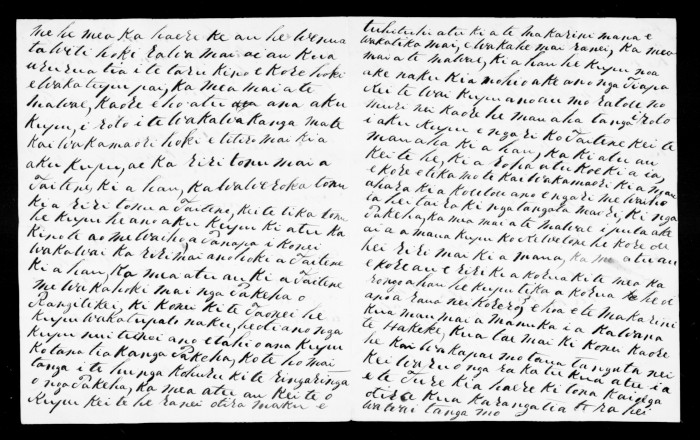 me he mea ka haere ke au he wenua
tawiti hoki rawa mai ai au kua
ururua tia i te taru kino e kore hoki
e waka tupu pai, ka mea mai a te
matwae, kaore e ho atu ana aku
kupu, i roto i te wakawakanga mate
kai wakamaori hoki e titiro mai ki a
aku kupu, ae ka riri tonu mai a
Taitene, ki a hau, ka wawe roka tonu
ki a riri tonu a Taitene, kei te tika tonu
he kupu he ano aku kupu ki atu ka
kino te ao me waiho a Tanapa i konei
wakawai ka riri mai ano hoki a Taitene
ki a hau, ka mea atu au ki a Taitene
me waka hoki mai nga Pakeha o
Rangitikei, ki konei ki te Taonei he
kupu wakatupato naku, heoti ano nga
kupu nui tenei ano etahi o ana kupu
Kotana tia kanga Pakeha, ko te ho mai
tanga i te hunga kohuru ki te ringaringa
o nga Pakeha, ka mea atu au kei te o
kupu kei te he ranei otira maku e
tuhituhi atu ki a te makarini mana e
wakatika mai, e waka he mai ranei, ka mea
mai a te matwae, ki a hau he kupu noa
ake naku ki a mohio ake ano nga Tiapa
Au te Wai kupu ano au no ratou no
muri nei kaore he manaha tanga i roto
i aku kupu e ngari ko Taitene kei te
manaha ki a hau, ka ki atu au
kei te he, ki a roha atu koe ki a ia,
e kore e tika mo te kai wakamaori ki a manu
ahara ki a koutou ano e ngari me waiho
ta hei tae ra ki nga tangata maori, ki nga
Pakeha, ka mea mai a te matwae i puta ake
ai a a mana kupu ko te wetone he kore ou
hei riri mai ki a mana, ka mea atu au
e kore au e riro ki a korua kite mea ka
rongo ahau he kupu tika a korua he oi
ano a raua nei korero, e hoa e te makarini
kua mau mai a manuka i a Kawana
te Hakeke, kua tae mai ki konei kaore
he kai wakapai mo tana tangata nei
kei waru o nga ra ka tu kua atu i a
e te Ture ki a haere ki tona kainga
otira kua karangatia te ra hei
wawai tanga mo